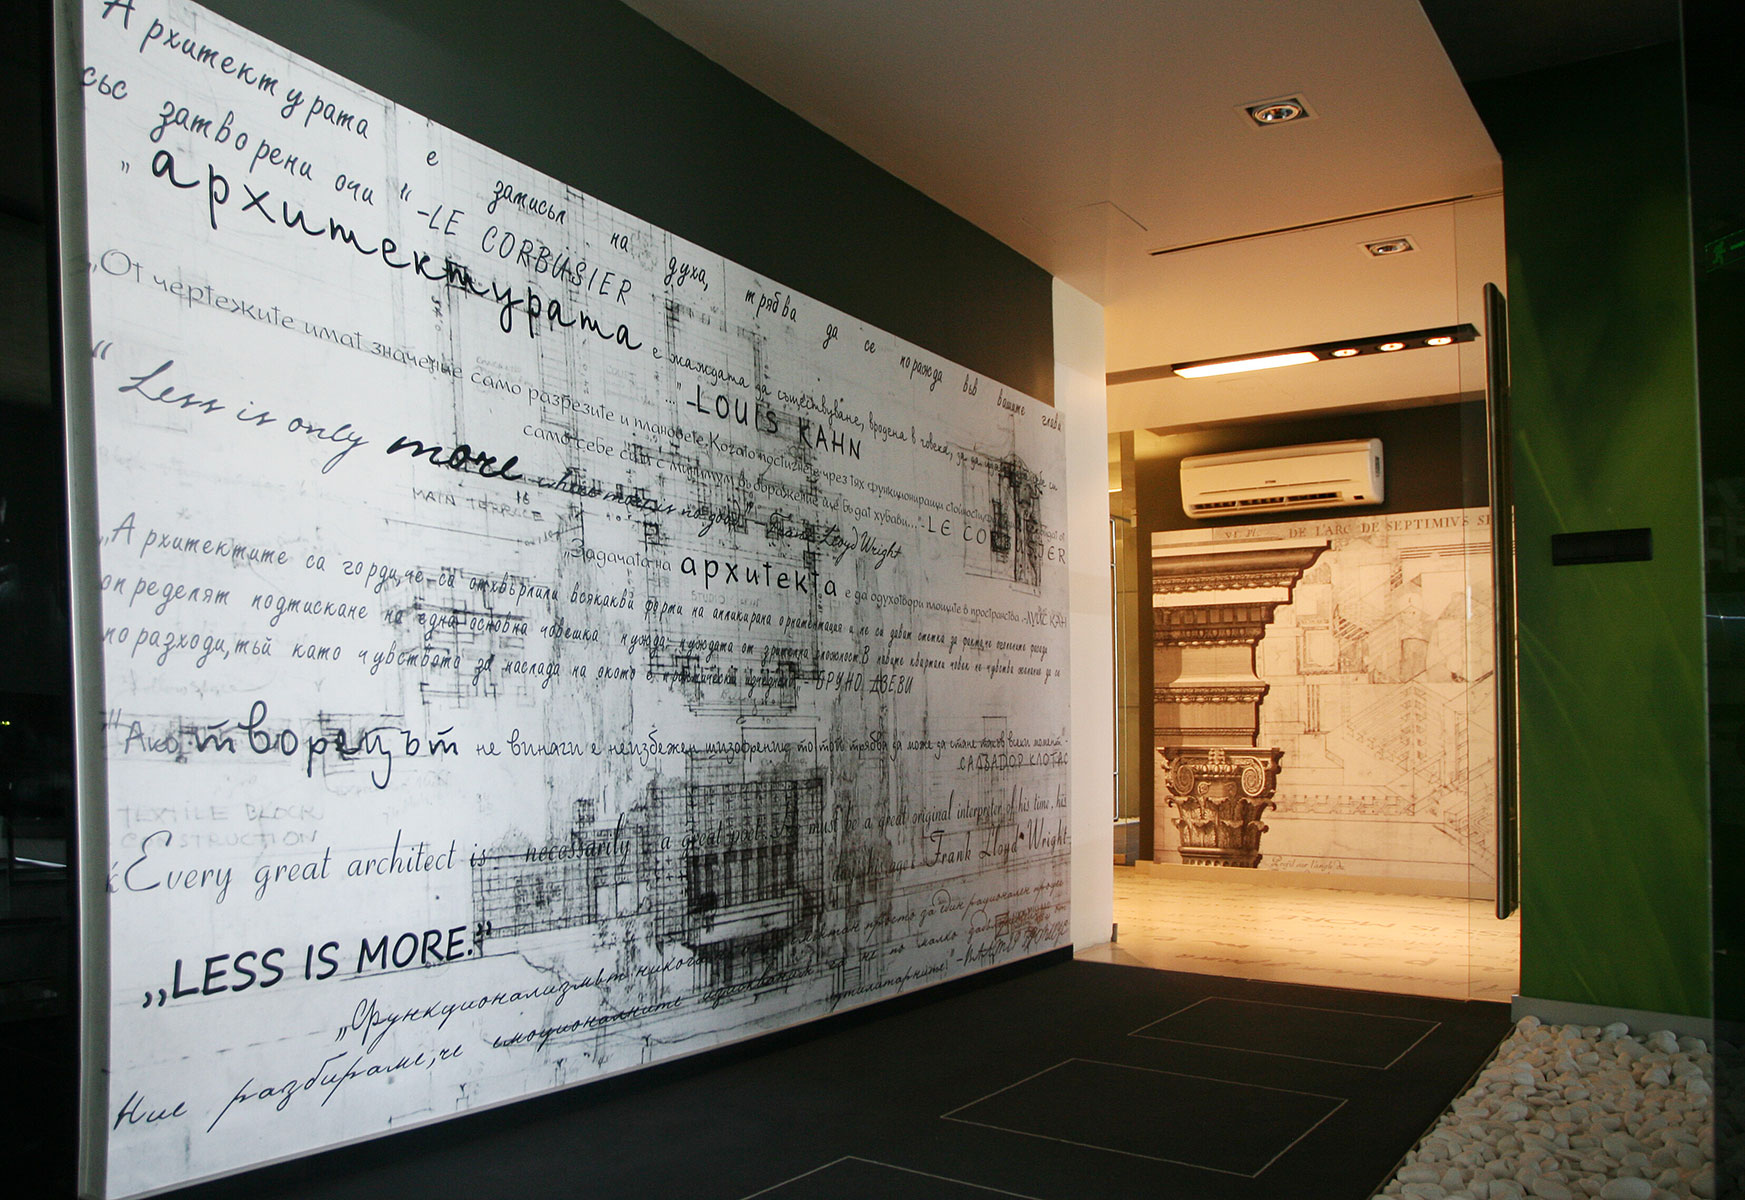 Архитектурата е замисъл на духа, трябва да се поражда във вашите глави
със затворени очи “ -LE CORBUSIER
„архитектурата е жаждата да съществуване, вродена в човека, за да
...“ -LOUIS KAHN
„От чертежите имат значение само разрезите и плановете. Когато постигнете чрез тях функциониращи стойности,
само себе си и с минимум въображение ще бъдат хубави...“-LE CORBUSIER
“ Less is only more where more is no good” - Frank Lloyd Wright
MAIN TERRACE
„Задачата на архитекта е да одухотвори площите в пространства -ЛУИС КАН
„Архитектите са горди,че са отхвърлили всякакви форми на апликирана орнаментация и не си дават сметка за факта,че техните фасади
определят подтискане на една основна човешка нужда: нуждата от зрителна сложност.В новите квартали човек не чувства желание да се
поразходи,тъй като чувството за наслада на окото е практически изчезнало“ БРУНО ДЗЕВИ
"Ако творецът не винаги е неизбежен шизофреник, то той трябва да може да стане такъв всеки момент“ -
САЛВАДОР КЛОТАС
TEXTILE BLOCK
CONSTRUCTION
“Every great architect is - necessarily - a great poet. He must be a great original interpreter of his time, his
day, his age." Frank Lloyd Wright
„LESS IS MORE.”
„Функционализмът никога не е смятан просто за един рационален процес
Ние разбираме,че емоционалните изисквания са не по малко задължителни от
утилитарните."
VE. PL. DE L'ARC DE SEPTIMIVS SE